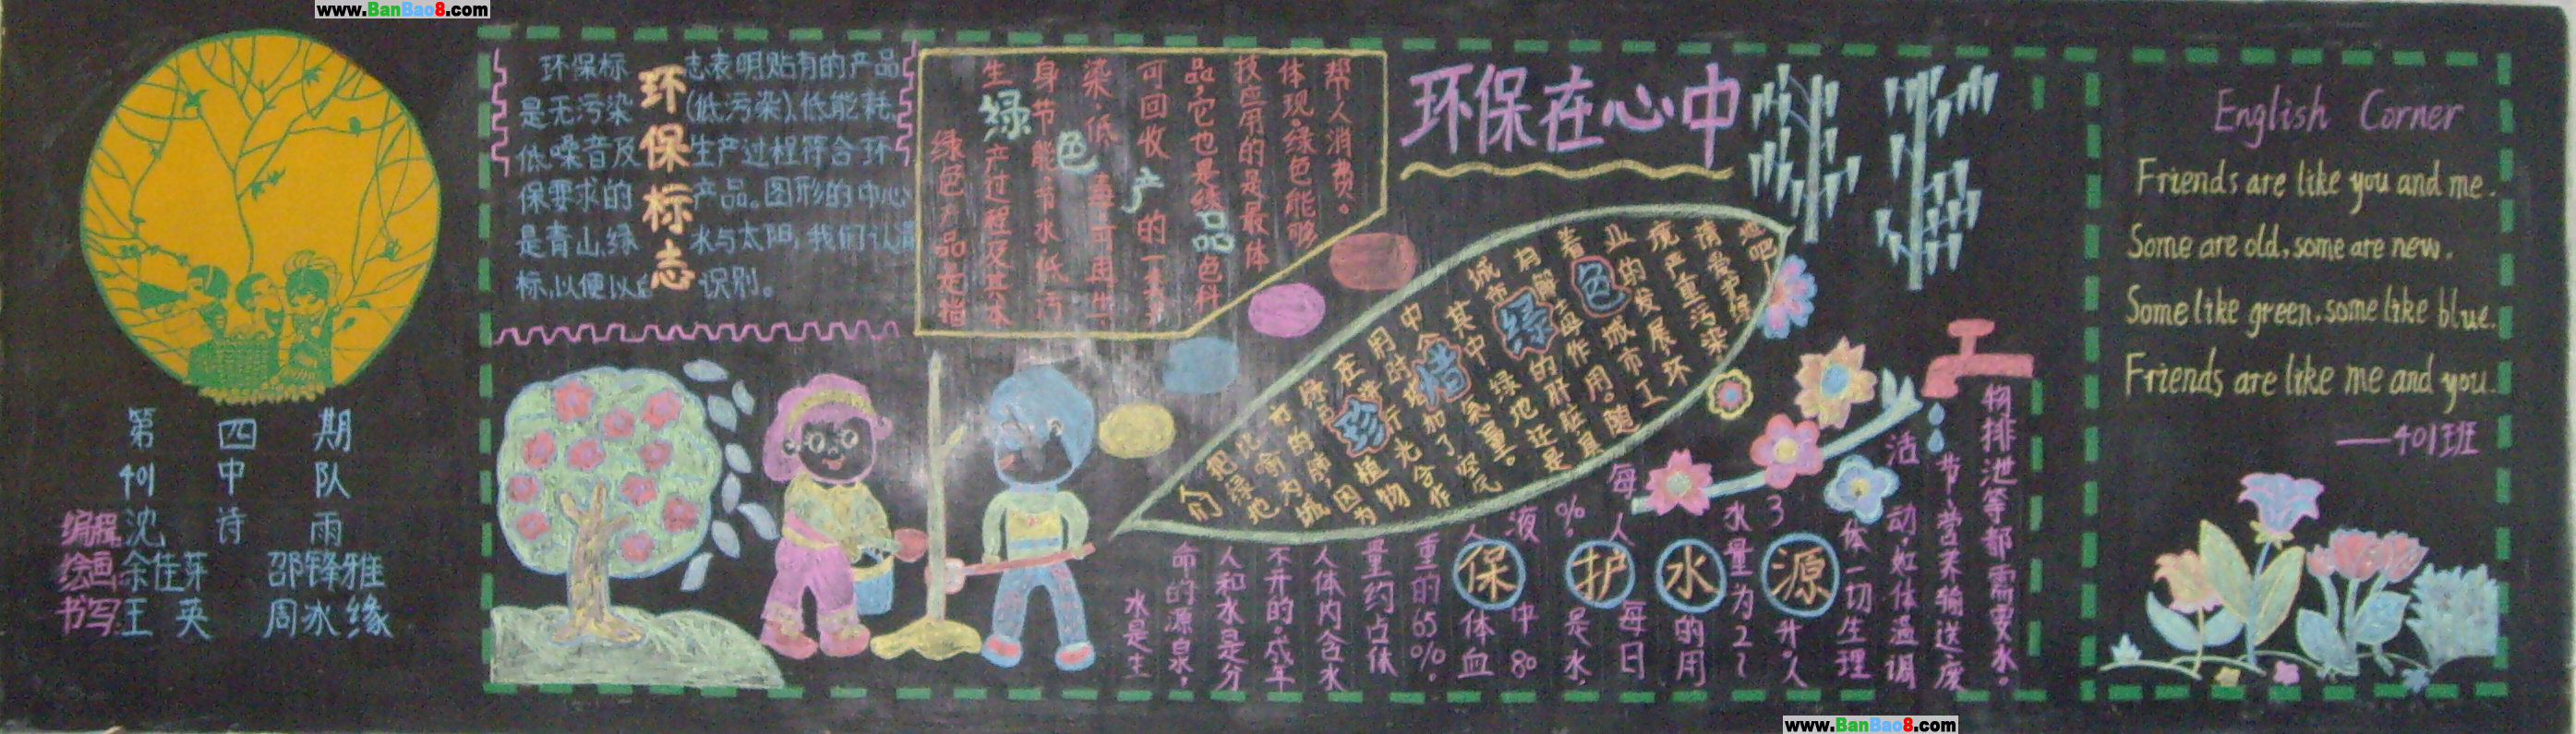 www.BanBao8.com
第四期
401中队
编辑 沈诗雨
绘画 余佳芽 邵锋雅
书写 王英 周冰缘
环保标志
环保标志表明贴有的产品
是无污染(低污染)、低能耗、
低噪音及生产过程符合环
保要求的产品。图形的中心
是青山、绿水与太阳,我们认清
标,以便以后识别。
绿色产品
绿色产品是指
生产过程及其本
身节能、节水、低污
染、低毒、可再生、
可回收的一类
品,它也是绿色科
技应用的是最体
体现。绿色能够
帮人消费。
环保在心中
珍惜绿色
们把绿地
比喻为城
市的肺,因为
绿色植物
在光合作
用时
中
其中绿地还是
城市的肝脏,具
有解毒作用。随
着城市工
业的发展,环
境严重污染
请爱护绿
地吧!
保护水源
水是生
命的源泉,
人和水是分
不开的。成年
人体内含水
量约占体
重的65%。
人体血
液中80
%是水,
每人每日
的用
水量为2~
3升。人
体一切生理
活动,如体温调
节、营养输送、废
物排泄等都需要水。
English Corner
Friends are like you and me.
Some are old, some are new.
Some like green, some like blue.
Friends are like me and you.
——401班
www.BanBao8.com